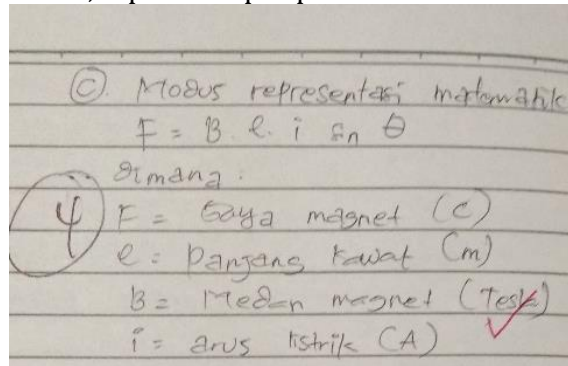 C. Modus representasi matematik
F = B. l. i sin θ
Dimana:
4
F = Gaya magnet (C)
l = Panjang kawat (m)
B = Medan magnet (Tesla)
i = arus listrik (A)